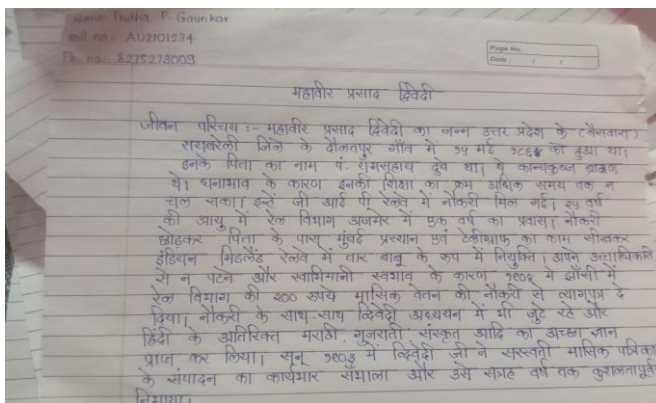 Name: Prutha P. Gaunkar
Roll no: AU2101234
Ph. no: 8275273009
Page No.
Date: / /
महावीर प्रसाद द्विवेदी
जीवन परिचय :- महावीर प्रसाद द्विवेदी का जन्म उत्तर प्रदेश के (बैसवारा)
रायबरेली जिले के दौलतपुर गाँव में १५ मई १८६४ को हुआ था।
इनके पिता का नाम पं. रामसहाय दुबे था। ये कान्यकुब्ज ब्राह्मण
थे। धनाभाव के कारण इनकी शिक्षा का क्रम अधिक समय तक न
चल सका। इन्हें जी आई पी रेलवे में नौकरी मिल गई। २५ वर्ष
की आयु में रेल विभाग अजमेर में एक वर्ष का प्रवास। नौकरी
छोड़कर पिता के पास मुंबई प्रस्थान एवं टेलीग्राफ का काम सीखकर
इंडियन मिडलैंड रेलवे में तार बाबू के रूप में नियुक्ति। अपने उच्चाधिकारी
से न पटने और स्वाभिमानी स्वभाव के कारण १९०४ में झाँसी में
रेल विभाग की २०० रुपये मासिक वेतन की नौकरी से त्यागपत्र दे
दिया। नौकरी के साथ-साथ द्विवेदी अध्ययन में भी जुटे रहे और
हिंदी के अतिरिक्त मराठी, गुजराती संस्कृत आदि का अच्छा ज्ञान
प्राप्त कर लिया। सन् १९०३ में द्विवेदी जी ने सरस्वती मासिक पत्रिका
के संपादन का कार्यभार संभाला और उसे सत्रह वर्ष तक कुशलतापूर्वक
निभाया।